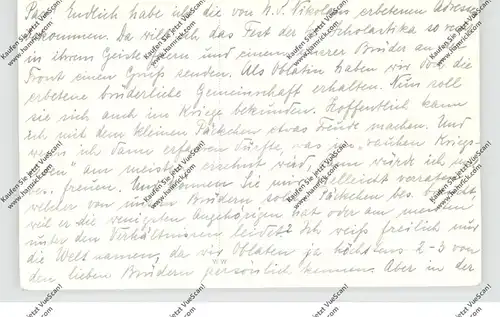 Pax! Endlich habe ich die von H. P. Nikolaus erbetenen Adressen
bekommen. Da will ich das Fest der Scholastika so recht
in ihrem Geiste feiern und einem unserer Brüder an der
Front einen Gruß senden. Als Oblaten haben wir doch die
erbetene brüderliche Gemeinschaft erhalten. Nun soll
sie sich auch im Kriege bekunden. Hoffentlich kann
ich mit dem kleinen Päckchen etwas Freude machen. Und
wenn ich dann erfahren dürfte, was im "rauhen Kriegs-
" am meisten ersehnt wird, dann würde ich
bes. freuen. Und können Sie mir vielleicht verraten
welcher von unsern Brüdern solche Päckchen bes. braucht
weil er die wenigsten Angehörigen hat oder am meisten
unter den Verhältnissen leidet? Ich weiß freilich nur
die Weltnamen, da wir Oblaten ja höchstens 2-3 von
den lieben Brüdern persönlich kennen. Aber in der
Kaufen Sie jetzt VueScan!
www.hamrick.com